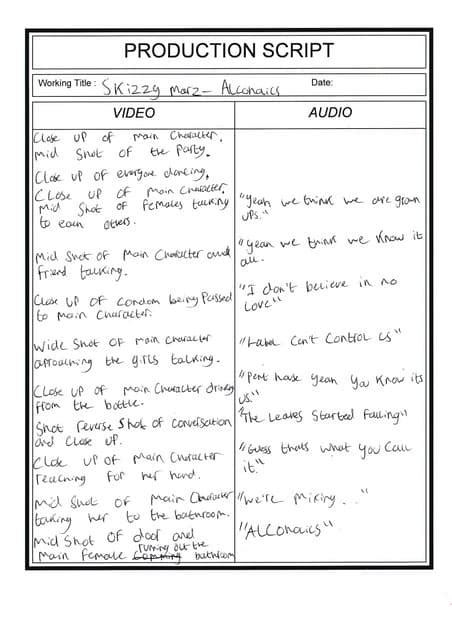 PRODUCTION SCRIPT
Working Title : Skizzy Marz - Alcoholics Date:
VIDEO AUDIO
Close up of main character.
Mid Shot of the Party.
Close up of everyone dancing,
Close up of main character
Mid Shot of females talking
to each others.
"Yeah we think we are grown
ups."
Mid Shot of Main Character and
friend talking.
"Yeah we think we know it
all.
Close up of condom being passed
to main character.
"I don't believe in no
Love"
Wide Shot of main character
aproaching the girls talking.
"Label Can't Control us"
Close up of main character drinking
from the bottle.
"Pent house yeah you know its
us"
Shot reverse Shot of conversation
and close up.
"The Leaves Started Falling"
Close up of main Character
reaching for her hand.
"Guess thats what you call
it."
Mid Shot of main Character
taking her to the bathroom.
"We're mixing . . "
Mid Shot of door and
main female running out the bathroom
"ALCOholics"